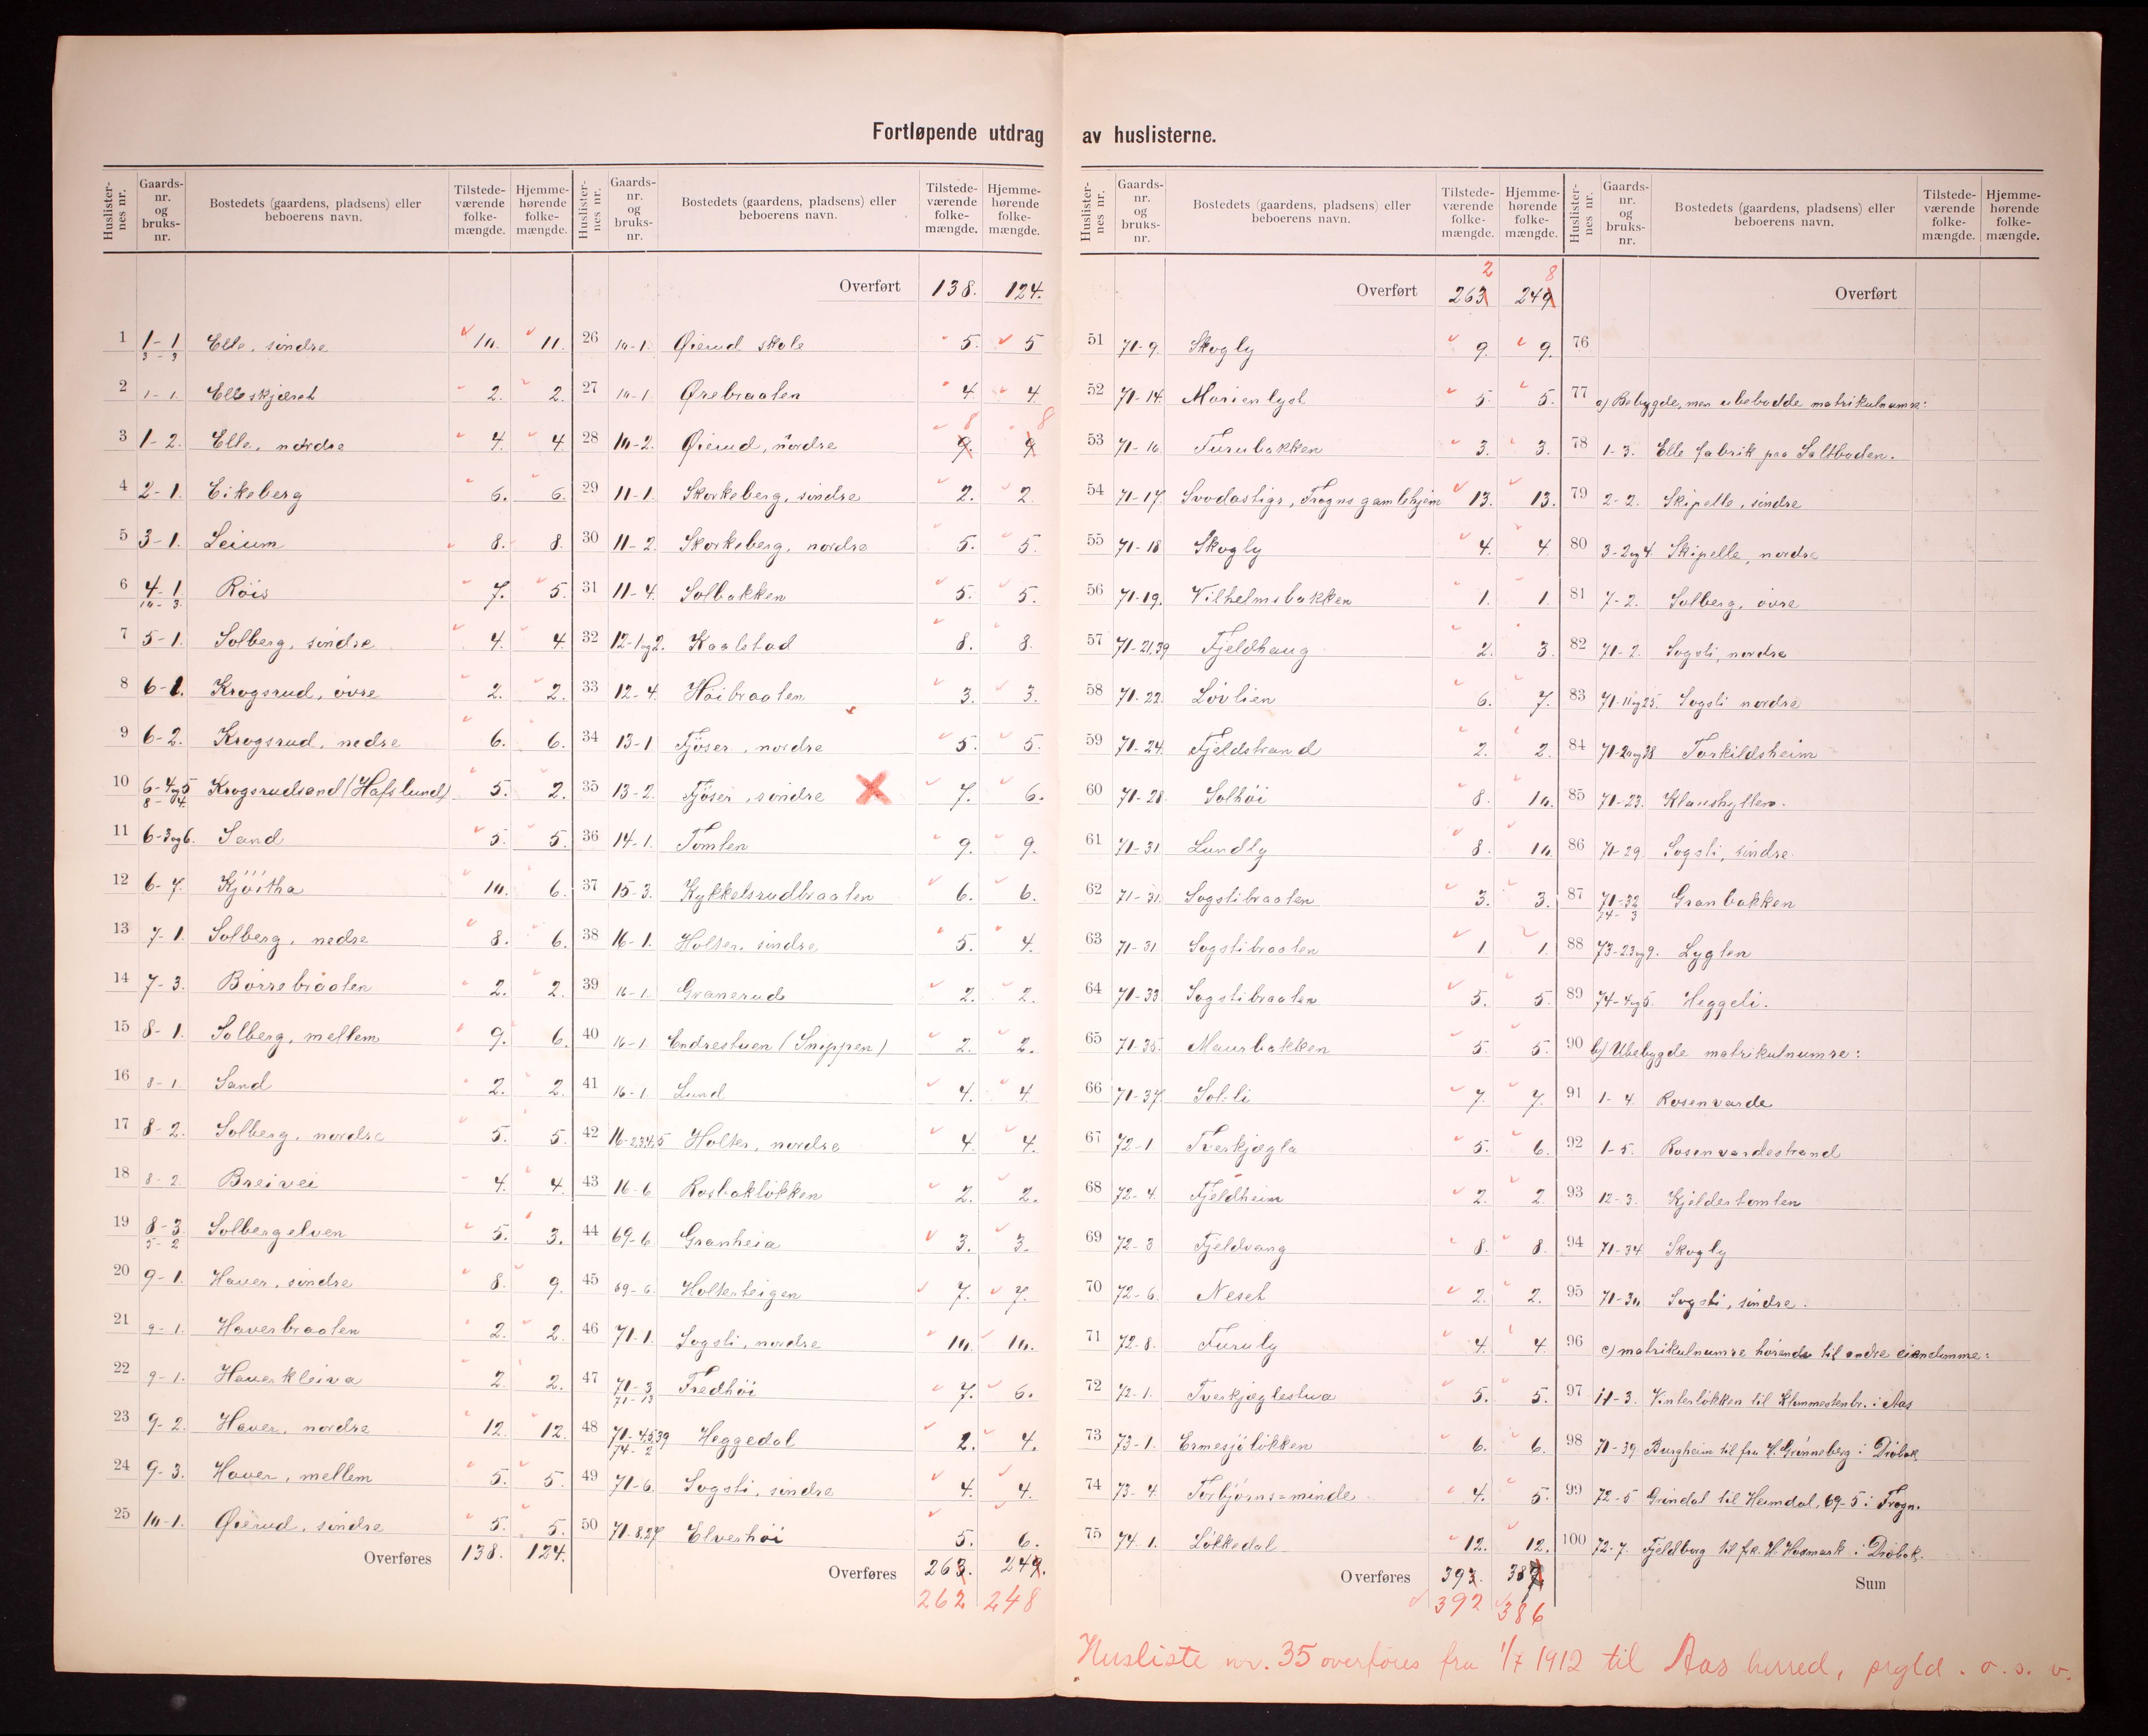 Fortløpende utdrag av huslisterne.
Huslisternes nr. Gaardsnr. og bruksnr. Bostedets (gaardens, pladsens) eller beboerens navn. Tilstedeværende folkemængde. Hjemmehørende folkemængde.
1 1-1 3-3 Elle, söndre 10. 11.
2 1-1. Elleskjæret 2. 2.
3 1-2. Elle, nordre 4. 4.
4 2-1. Eikeberg 6. 6.
5 3-1. Leium 8. 8.
6 4-1 10-3. Röis 7. 5.
7 5-1. Solberg, söndre 4. 4.
8 6-1. Krogsrud, övre 2. 2.
9 6-2. Krogsrud, nedre 6. 6.
10 6-4og5 8-4. Krogsrudsand (Hafslund) 5. 2.
11 6-3og6. Sand 5. 5.
12 6-7. Kjöitha 10. 6.
13 7-1. Solberg, nedre 8. 6.
14 7-3. Börrebraaten 2. 2.
15 8-1. Solberg, mellem 9. 6.
16 8-1. Sand 2. 2.
17 8-2. Solberg, nordre 5. 5.
18 8-2. Breivei 4. 4.
19 8-3. 5-2 Solbergelven 5. 3.
20 9-1. Haver, söndre 8. 9.
21 9-1. Haverbraaten 2. 2.
22 9-1. Haverkleiva 2. 2.
23 9-2. Haver, nordre 12. 12.
24 9-3. Haver, mellem 5. 5.
25 10-1. Øierud, söndre 5. 5.
Overføres 138. 124.
Huslisternes nr. Gaardsnr. og bruksnr. Bostedets (gaardens, pladsens) eller beboerens navn. Tilstedeværende folkemængde. Hjemmehørende folkemængde.
Overført 138. 124.
26 10-1. Øierud skole 5. 5
27 10-1. Ørebraaten 4. 4.
28 10-2. Øierud, nordre 9. 8 9 8
29 11-1. Skorkeberg, söndre 2. 2.
30 11-2. Skorkeberg, nordre 5. 5.
31 11-4. Solbakken 5. 5.
32 12-1og2. Kaalstad 8. 8.
33 12-4. Höibraaten 3. 3.
34 13-1 Fjöser, nordre 5. 5.
35 13-2. Fjöser, söndre 7. 6.
36 14-1. Tomten 9. 9.
37 15-3. Kykkelsrudbraaten 6. 6.
38 16-1. Holter, söndre 5. 4.
39 16-1. Granerud 2. 2.
40 16-1 Endrestuen (Snippen) 2. 2.
41 16-1. Lund 4. 4
42 16-2,3,4,5 Holter, nordre 4. 4.
43 16-6 Rosbaklökken 2. 2.
44 69-6 Granheia 3. 3.
45 69-6. Holterteigen 7. 7.
46 71-1. Sogsti, nordre 10. 10.
47 71-3 71-13 Fredhöi 7. 6.
48 71-4,5,39 74-2 Heggedal 2. 4.
49 71-6. Sogsti, söndre 4. 4.
50 71-8.27 Elverhöi 5. 6.
Overføres 263. 249.
262 248
Huslisternes nr. Gaardsnr. og bruksnr. Bostedets (gaardens, pladsens) eller beboerens navn. Tilstedeværende folkemængde. Hjemmehørende folkemængde.
2 8
Overført 263 249
51 71-9. Skogly 9. 9.
52 71-14. Marienlyst 5. 5.
53 71-16. Furubakken 3. 3.
54 71-17. Svodastigr, Frogns gamlehjem 13. 13.
55 71-18 Skogly 4. 4
56 71-19. Vilhelmsbakken 1. 1.
57 71-21,39 Fjeldhaug 2. 3.
58 71-22. Lövlien 6. 7.
59 71-24. Fjeldstrand 2. 2.
60 71-28. Solhöi 8. 10.
61 71-31 Lundly 8. 10.
62 71-31. Sogstibraaten 3. 3.
63 71-31 Sogstibraaten 1 1.
64 71-33 Sogstibraaten 5. 5.
65 71-35. Maurbakken 5. 5.
66 71-37 Sol-li 7. 7.
67 72-1 Tverkjægla 5. 6.
68 72-4. Fjeldheim 2. 2.
69 72-3 Fjeldvang 8. 8.
70 72-6. Neset 2. 2.
71 72-8. Furuly 4. 4.
72 72-1. Tverkjæglestua 5. 5.
73 73-1. Ermesjölökken 6. 6.
74 73-4. Torbjörns=minde 4. 5.
75 74-1. Lökkedal 12. 12.
Overføres 393. 387
392 386
Huslisternes nr. Gaardsnr. og bruksnr. Bostedets (gaardens, pladsens) eller beboerens navn. Tilstedeværende folkemængde. Hjemmehørende folkemængde.
Overført
76
77 a) Bebygde, men ubebodde matrikulnumre:
78 1-3. Elle fabrik paa Saltboden.
79 2-2. Skipelle, söndre
80 3-2og4. Skipelle, nordre
81 7-2. Solberg, övre
82 71-2. Sogsti, nordre
83 71-11og25. Sogsti nordre
84 71-20og38 Torkildsheim
85 71-23. Klaushytten.
86 71-29. Sogsti, söndre.
87 71-32 74-3 Granbakken
88 73-2.3og9. Lygten
89 74-4og5. Heggeli.
90 b) Ubebygde matrikulnumre:
91 1-4. Rosenvarde
92 1-5. Rosenvardestrand
93 12-3. Kjeldertomten
94 71-34 Skogly
95 71-30 Sogsti, söndre.
96 c) matrikulnumre hörende til andre eiendomme:
97 11-3. Vinterlökken til Klommestenbr. i Aas
98 71-39 Burgheim til fru H. Grönneberg i Dröbak
99 72-5 Gröndal til Heimdal, 69-5 i Frogn.
100 72-7. Fjeldborg til fr. H. Hosmark i Dröbak.
Sum
Husliste nr. 35 overföres fra 1/7 1912 til Aas herred, prgld. o. s. v.